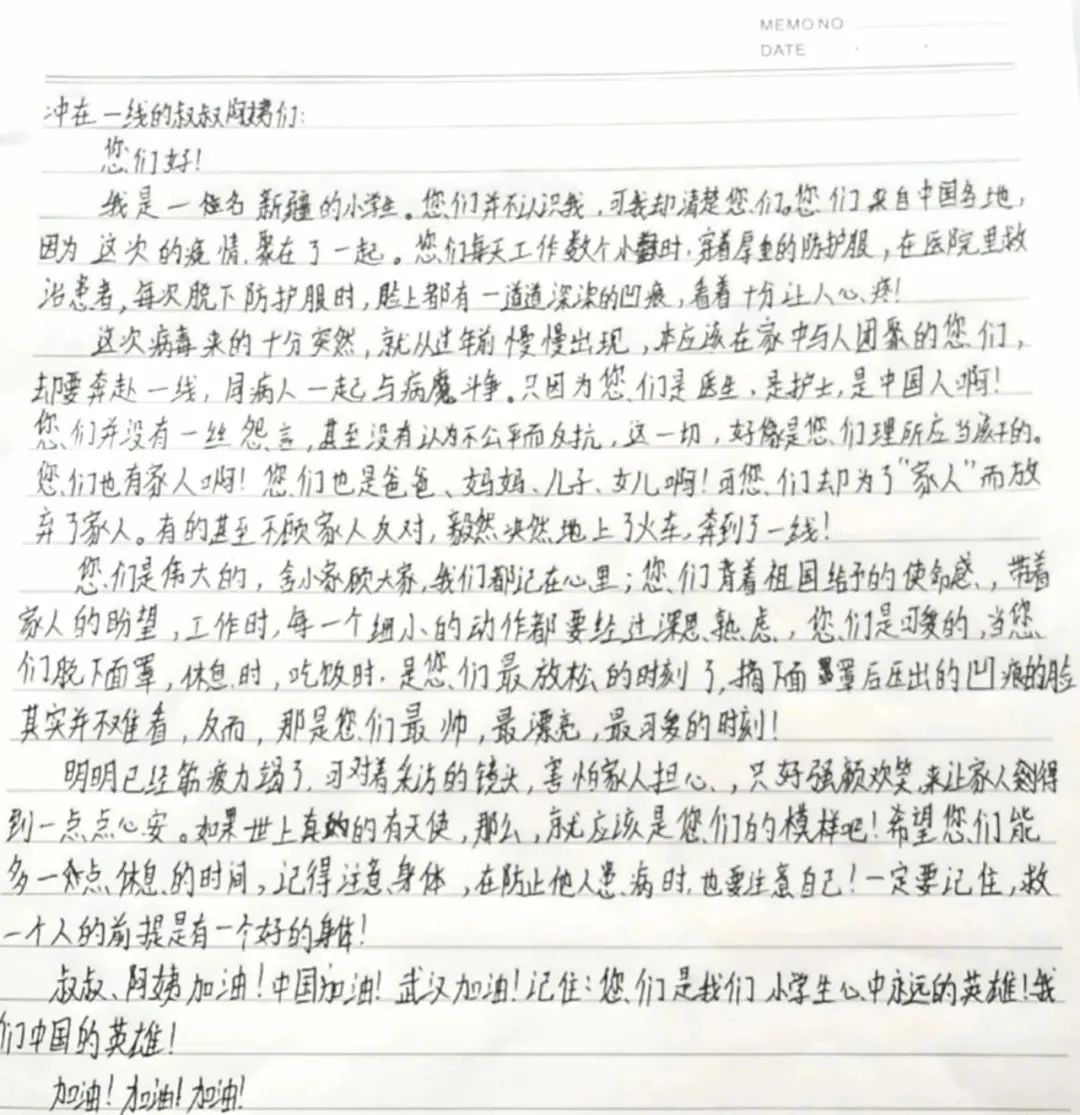 MEMO NO
DATE
冲在一线的叔叔阿姨们:
您们好!
我是一名新疆的小学生。您们并不认识我,可我却清楚您们。您们来自中国各地,
因为这次的疫情,聚在了一起。您们每天工作数个小时,穿着厚重的防护服,在医院里救
治患者,每次脱下防护服时,脸上都有一道道深深的凹痕,看着十分让人心疼!
这次病毒来的十分突然,就从过年前慢慢出现,本应该在家中与人团聚的您们,
却要奔赴一线,同病人一起与病魔斗争。只因为您们是医生,是护士,是中国人啊!
您们并没有一丝怨言,甚至没有认为不公平而反抗,这一切,好像是您们理所应当应干的。
您们也有家人啊!您们也是爸爸、妈妈、儿子、女儿啊!可您们却为了“家人”而放
弃了家人。有的甚至不顾家人反对,毅然决然地上了火车,奔到了一线!
您们是伟大的,舍小家顾大家,我们都记在心里;您们背着祖国给予的使命感,带着
家人的盼望,工作时,每一个细小的动作都要经过深思熟虑,您们是可爱的,当您
们脱下面罩,休息时,吃饭时,是您们最放松的时刻了,摘下面罩后压出的凹痕的脸
其实并不难看,反而,那是您们最帅,最漂亮,最可爱的时刻!
明明已经筋疲力竭了,可对着采访的镜头,害怕家人担心,只好强颜欢笑,来让家人得
到一点点心安。如果世上真的有天使,那么,就应该是您们的模样吧!希望您们能
多一点休息的时间,记得注意身体,在防止他人患病时,也要注意自己!一定要记住,救
一个人的前提是有一个好的身体!
叔叔、阿姨加油!中国加油!武汉加油!记住:您们是我们小学生心中永远的英雄!我
们中国的英雄!
加油!加油!加油!